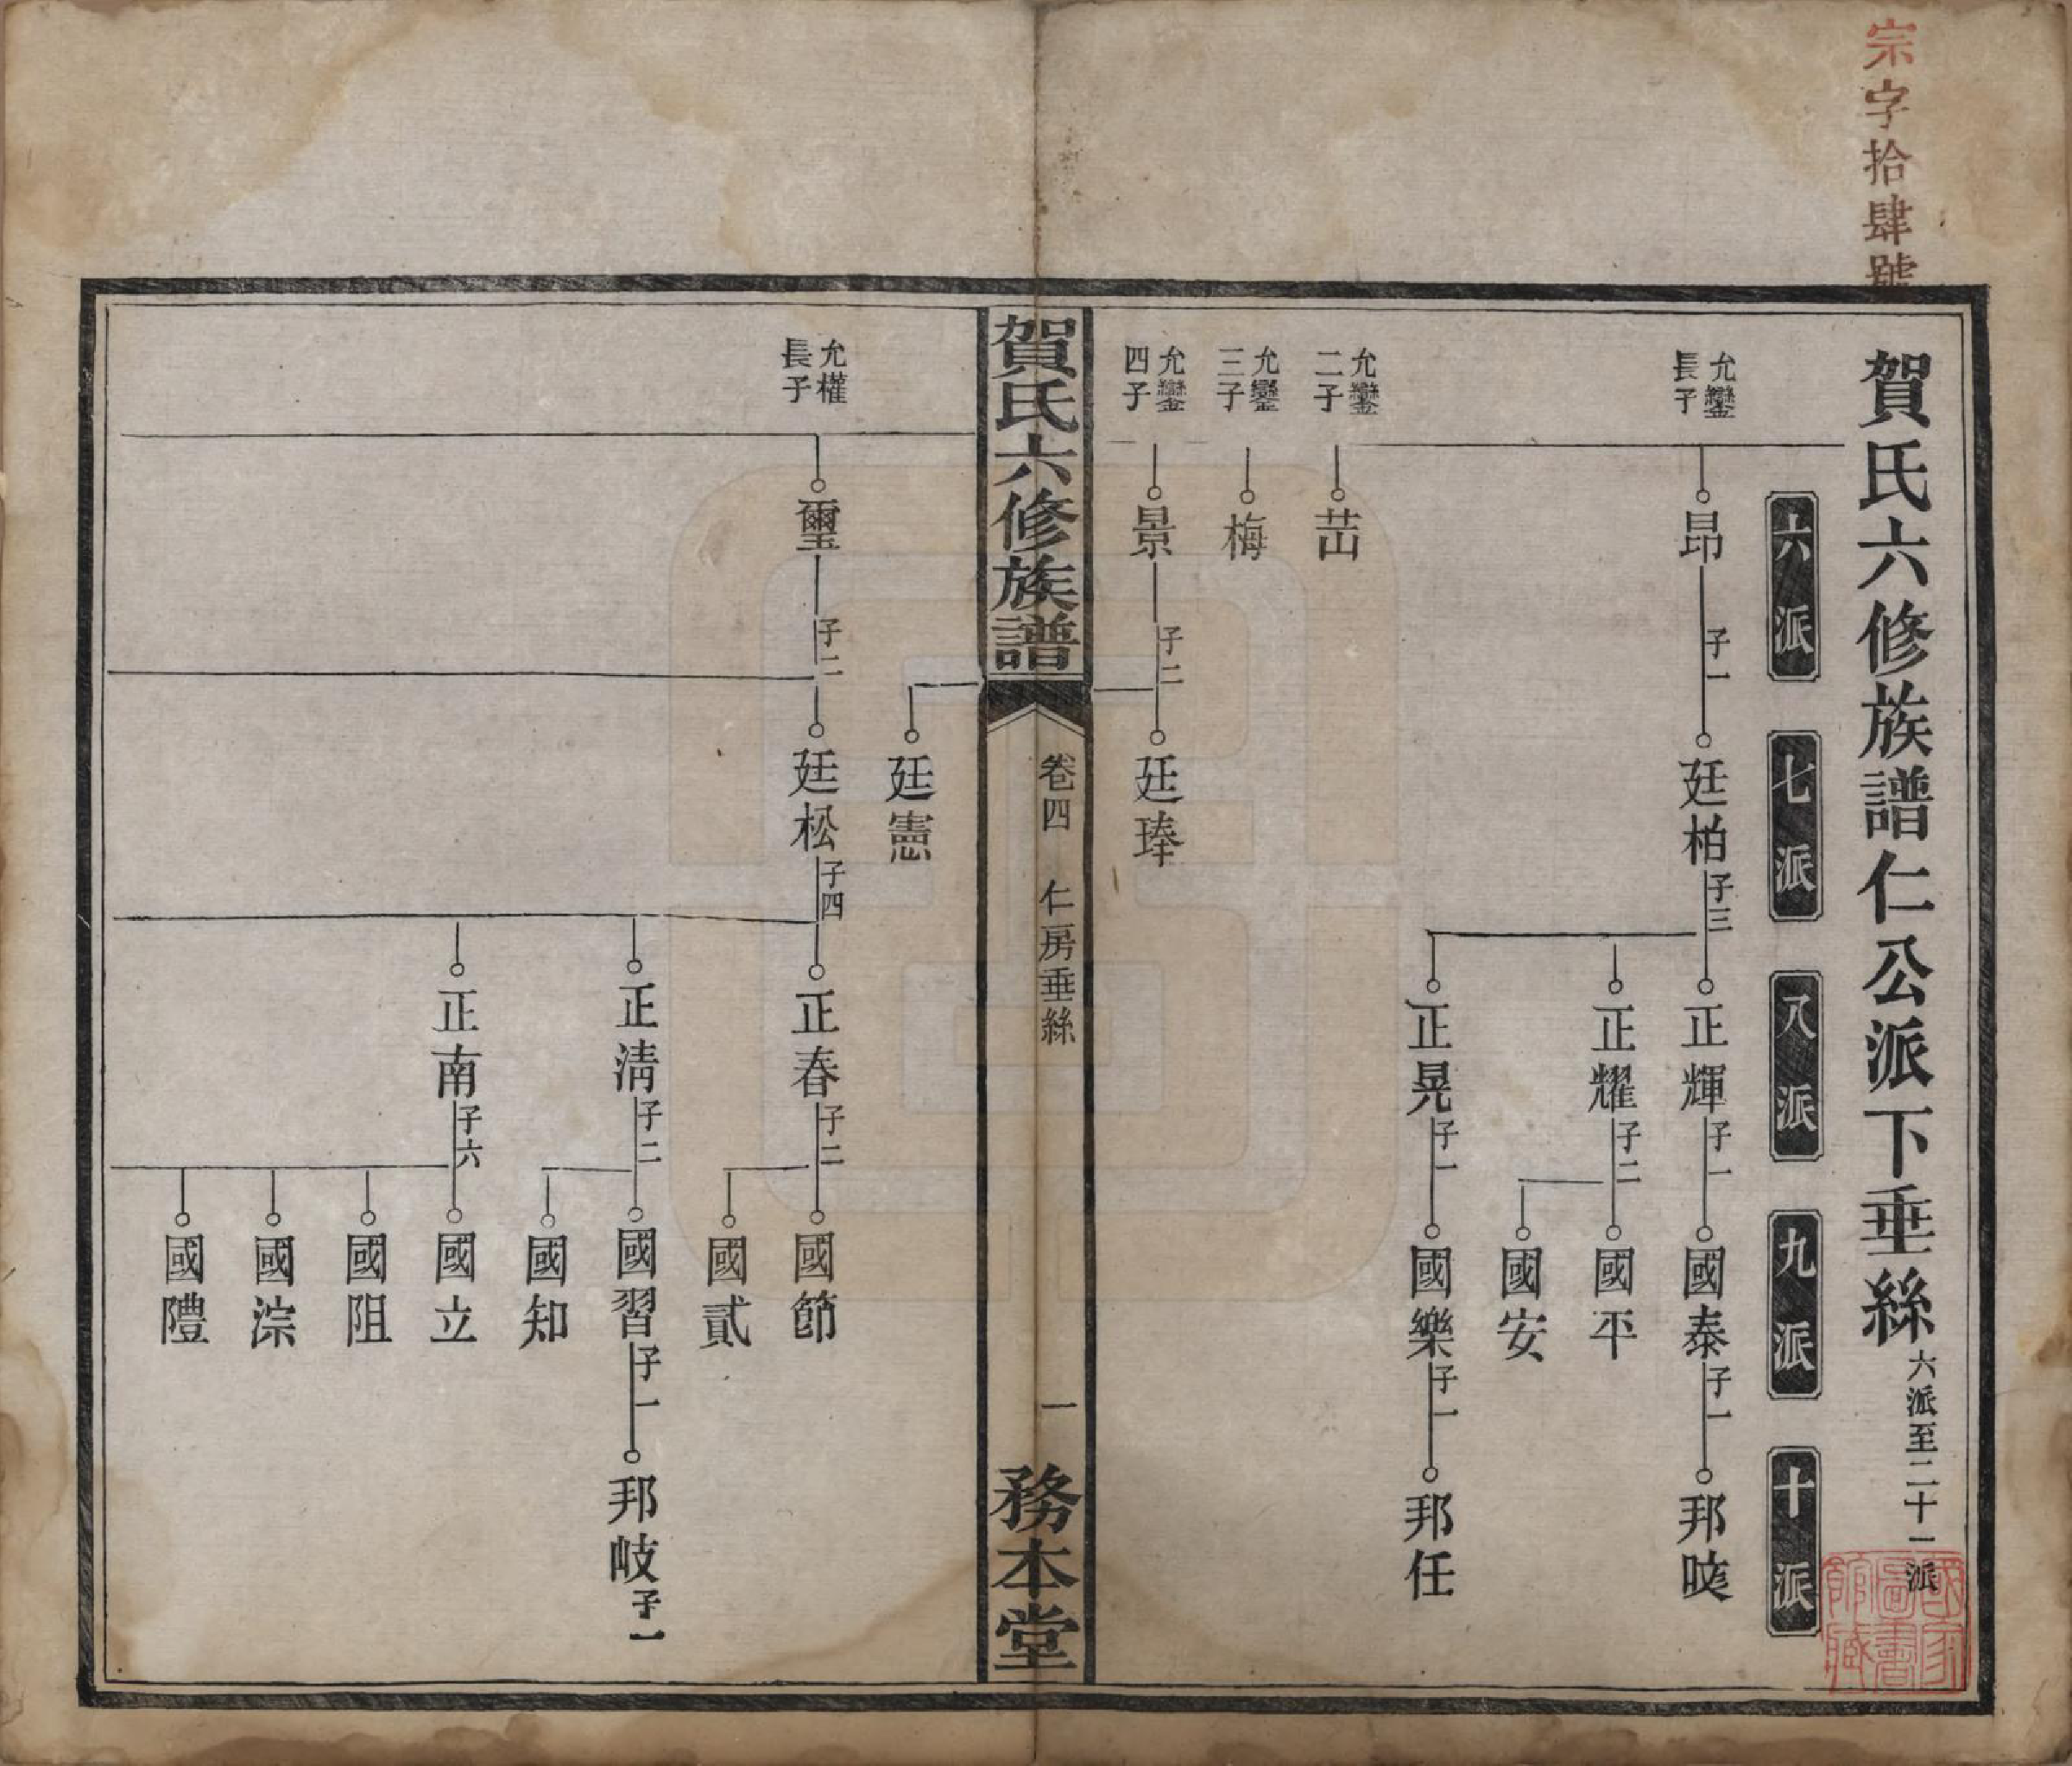 宗字拾肆號
賀氏六修族譜仁公派下垂絲六派至二十一派
國家圖書館藏
六派
七派
八派
九派
十派
允鑾長子
昂子一
廷柏子三
正輝子一
國泰子一
邦咬
正耀子二
國平
國安
正晃子一
國樂子一
邦任
允鑾二子
茁
允鑾三子
梅
允鑾四子
景子二
廷琫
賀氏六修族譜
卷四 仁房垂絲
一
務本堂
廷憲
允權長子
璽子二
廷松子四
正春子二
國節
國貳
正清子二
國習子一
邦岐子一
國知
正南子六
國立
國阻
國淙
國醴